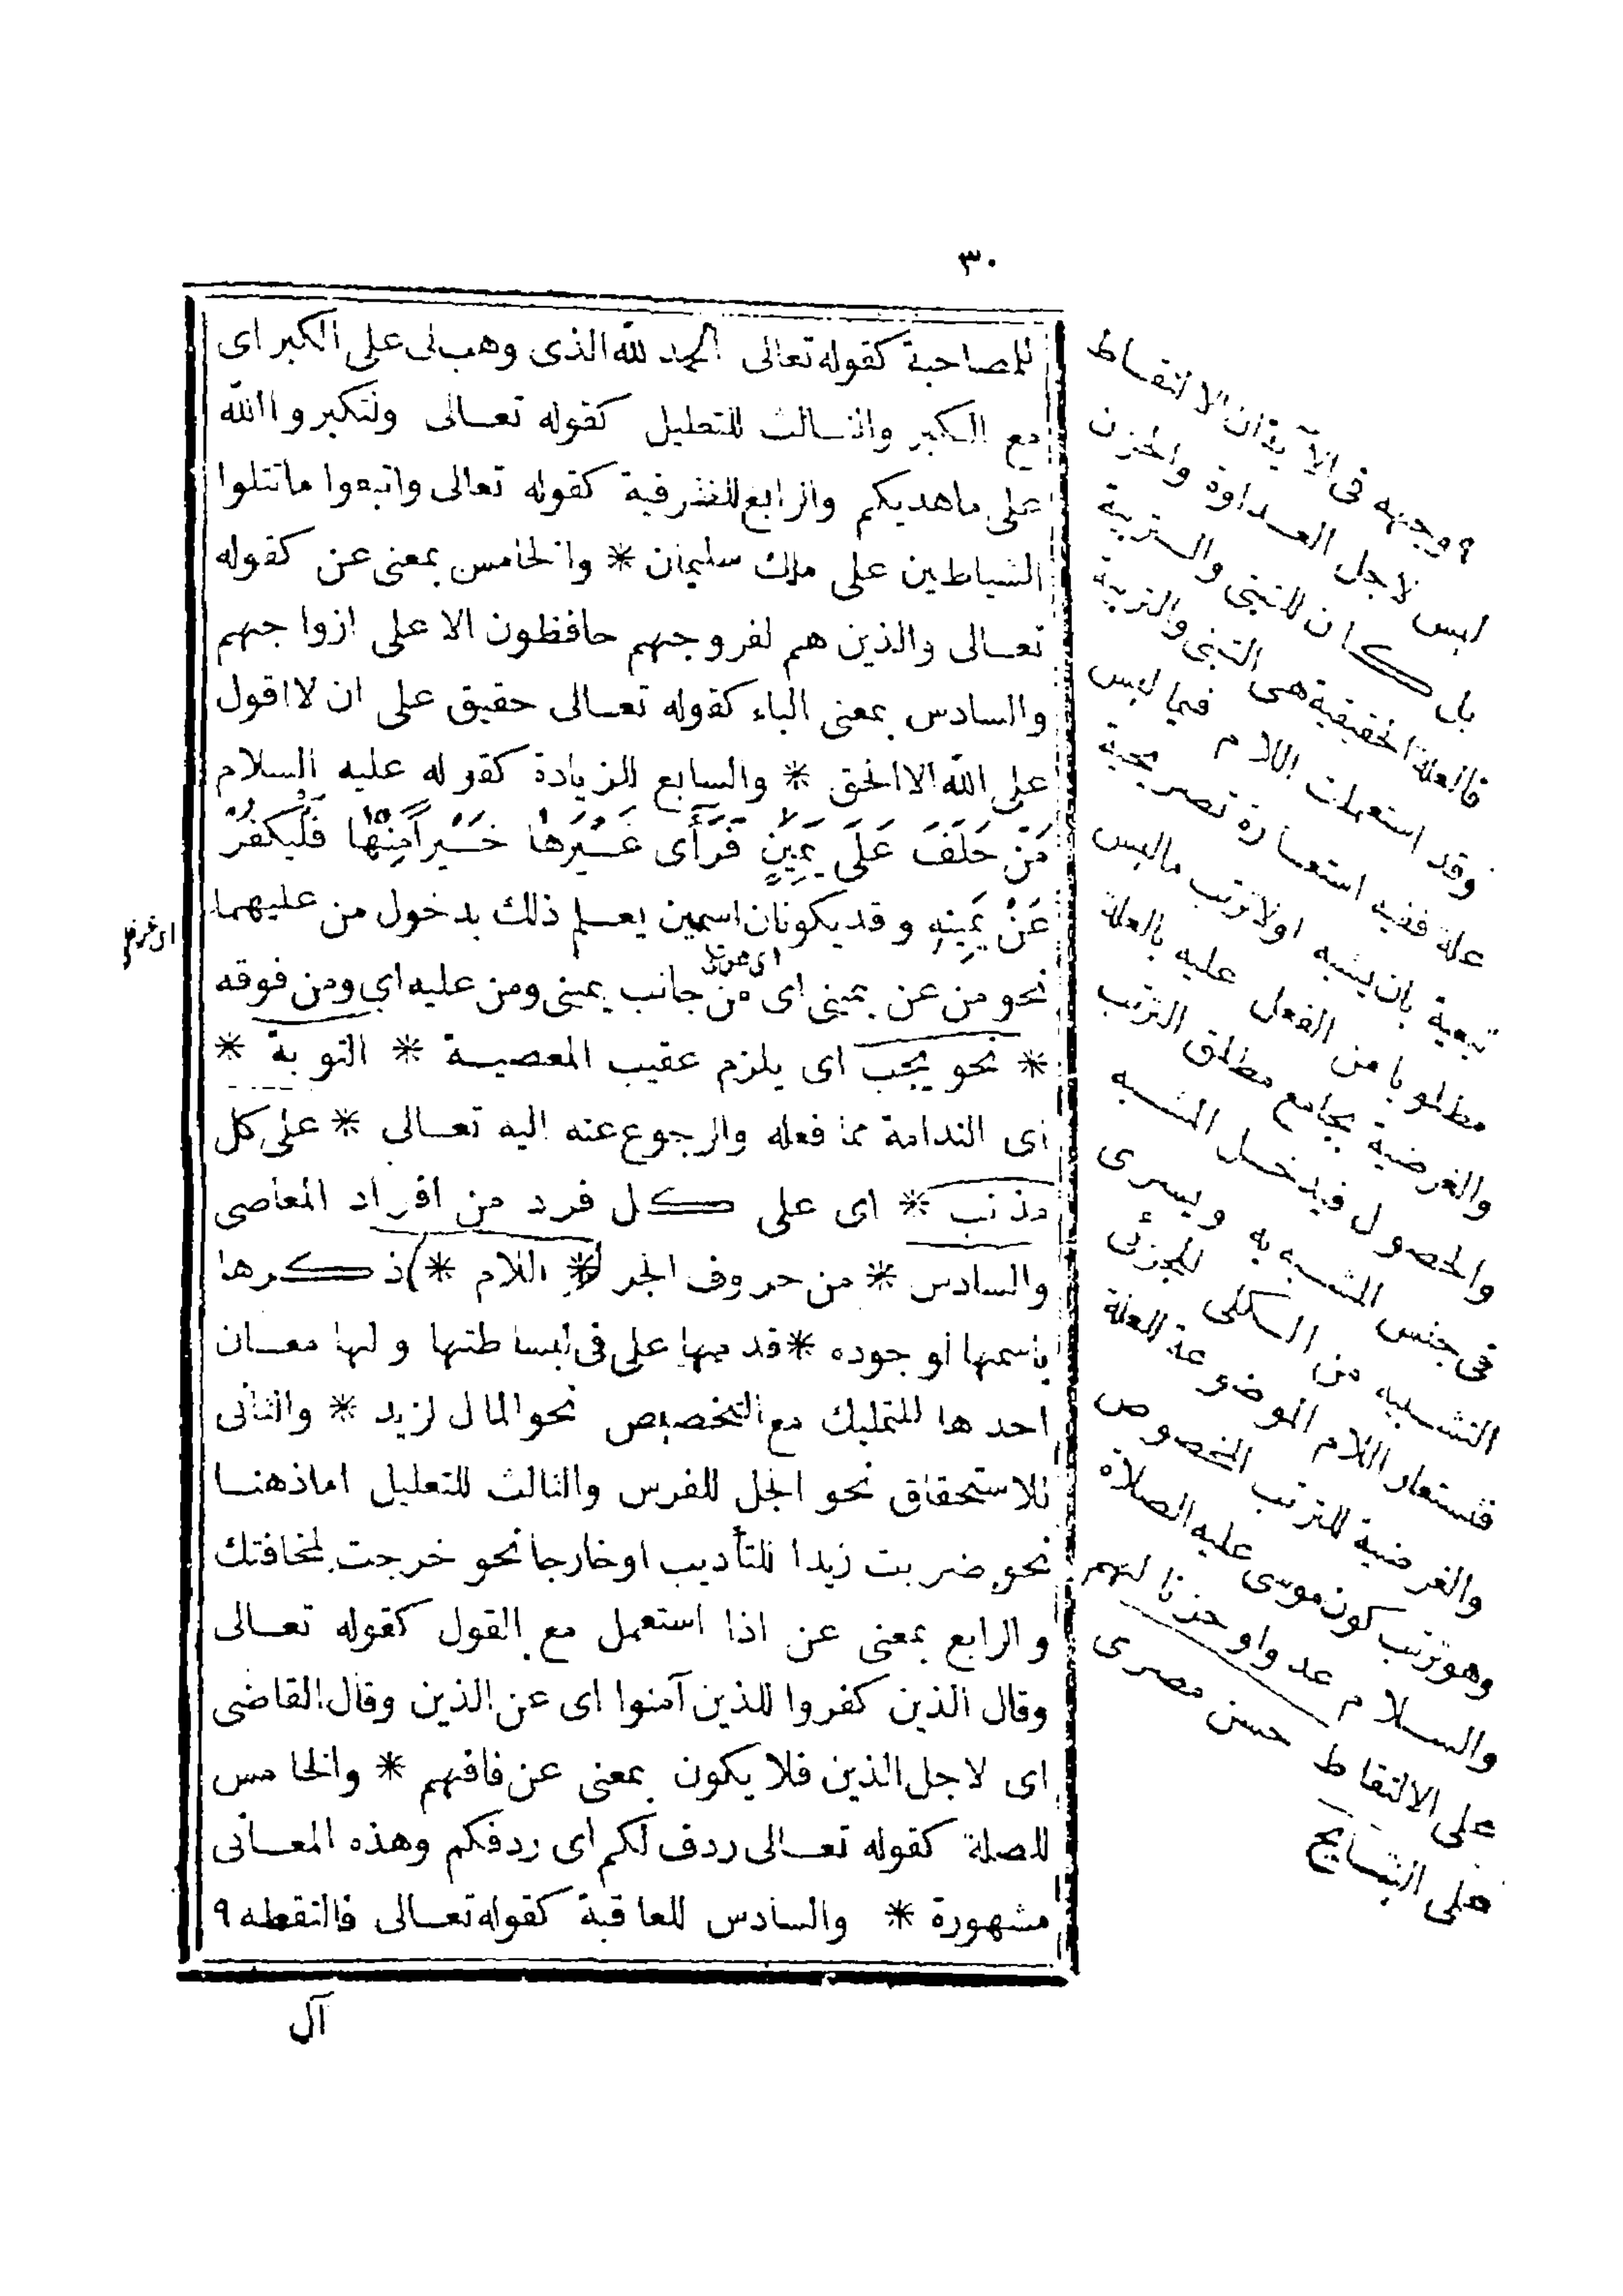 ٣٠
للمصاحبة كقوله تعالى الحمد لله الذى وهب لى على الكبر اى
مع الكبر والثالث للتعليل كقوله تعالى ولتكبروا الله
على ماهديكم والرابع للظرفية كقوله تعالى واتبعوا ماتتلوا
الشياطين على ملك سليمان * والخامس بمعنى عن كقوله
تعالى والذين هم لفروجهم حافظون الا على ازواجهم
والسادس بمعنى الباء كقوله تعالى حقيق على ان لااقول
على الله الا الحق * والسابع للزيادة كقوله عليه السلام
مَنْ حَلَفَ عَلَى يَمِينٍ فَرَأَى غَيْرَهَا خَيْرًا مِنْهَا فَلْيُكَفِّرْ
عَنْ يَمِينِهِ وقد يكونان اسمين يعلم ذلك بدخول من عليهما
نحو من عن يمينى اى من جانب يمينى ومن عليه اى ومن فوقه
* نحو يجب اى يلزم عقيب المعصية * التوبة *
اى الندامة مما فعله والرجوع عنه اليه تعالى * على كل
مذنب * اى على كل فرد من افراد المعاصى
والسادس * من حروف الجر (* اللام *) ذكرها
باسمها لوجوده * قدمها على فى لبساطتها ولها معان
احدها للتمليك مع التخصيص نحو المال لزيد * والثانى
للاستحقاق نحو الجل للفرس والثالث للتعليل اماذهنا
نحو ضربت زيدا للتأديب اوخارجا نحو خرجت لمخافتك
والرابع بمعنى عن اذا استعمل مع القول كقوله تعالى
وقال الذين كفروا للذين آمنوا اى عن الذين وقال القاضى
اى لاجل الذين فلا يكون بمعنى عن فافهم * والخامس
للصلة كقوله تعالى ردف لكم اى ردفكم وهذه المعانى
مشهورة * والسادس للعاقبة كقوله تعالى فالتقطه ٩
آل
٩ وجهه فى الآية ان الالتقاط
ليس لاجل العداوة والحزن
بل كان للتبنى والتربية
فالعلة الحقيقية هى التبنى والتربية
وقد استعملت اللام فيما ليس
علة ففيه استعارة تصريحية
تبعية بان يشبه اولا ترتب ماليس
مطلوبا من الفعل عليه بالعلة
والغرضية بجامع مطلق الترتب
والحصول فيدخل المشبه
فى جنس المشبه به ويسرى
التشبيه من الكلى للجزئى
فتستعار اللام الموضوعة للعلة
والغرضية للترتب المخصوص
وهو ترتب كون موسى عليه الصلاة
والسلام عدوا وحزنا لهم
على الالتقاط حسن مصرى
على النتايج